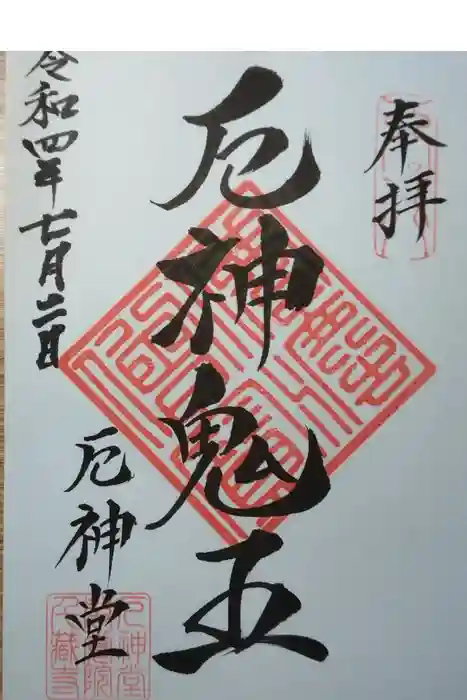 奉拝
厄神鬼王
令和四年七月二日
厄神堂